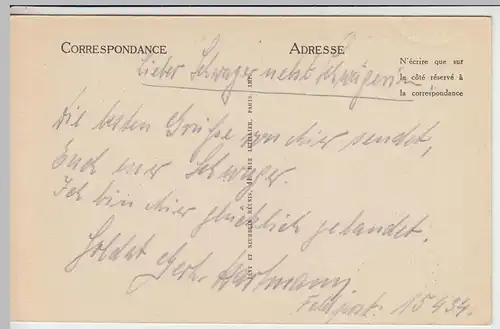 CORRESPONDANCE
ADRESSE
N'écrire que sur
le côté réservé à
la correspondance
Lieber Schwager nebst Schwägerin
Die besten Grüße von hier sendet,
Euch euer Schwager.
Ich bin hier glücklich gelandet.
Soldat Gerh. Hartmann,
Feldpost. 15434.